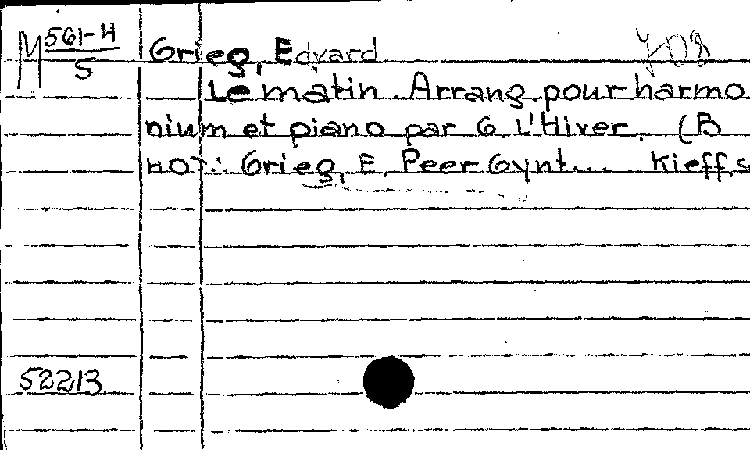 M 561-H Grieg, Edvard 708
5
Le matin. Arrang. pour harmo
nium et piano par G L'Hiver. (B
not: Grieg, E, Peer Gynt... Kieffs
52213